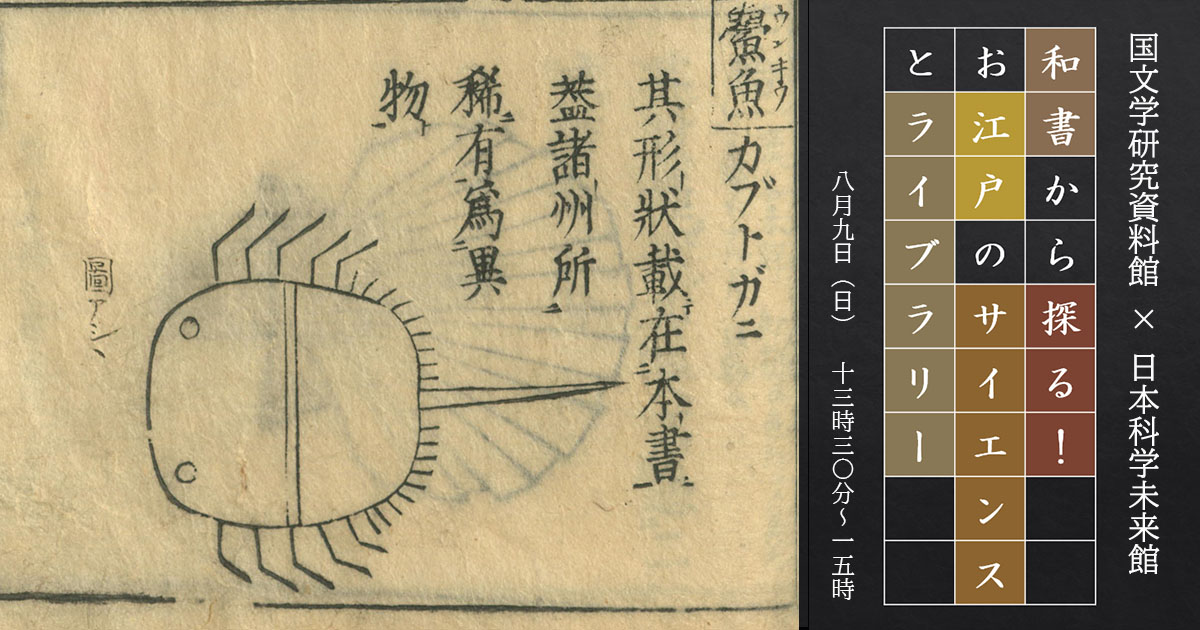 国文学研究資料館 × 日本科学未来館
和書から探る！
お江戸のサイエンス
とライブラリー
八月九日（日） 十三時三〇分～一五時
ウンキウ
鱟魚 カブトガニ
其形狀載在本書
葢諸州所
稀有爲異
物
圖アシ、